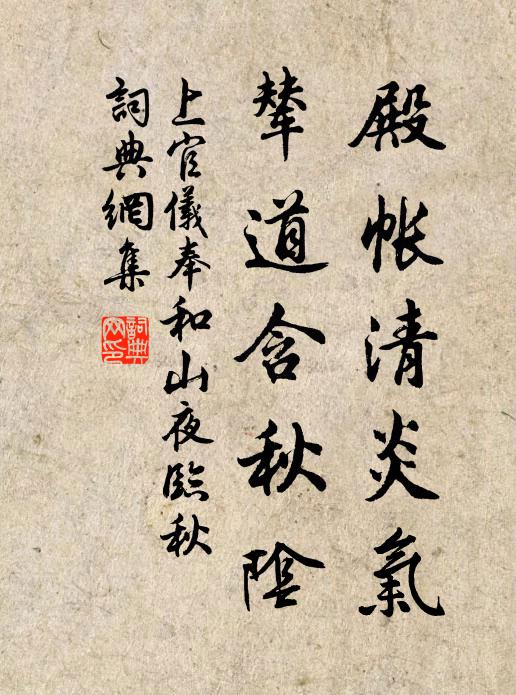 殿帳清炎氣
輦道含秋陰
上官儀奉和山夜臨秋
詞典網集
詞典網印